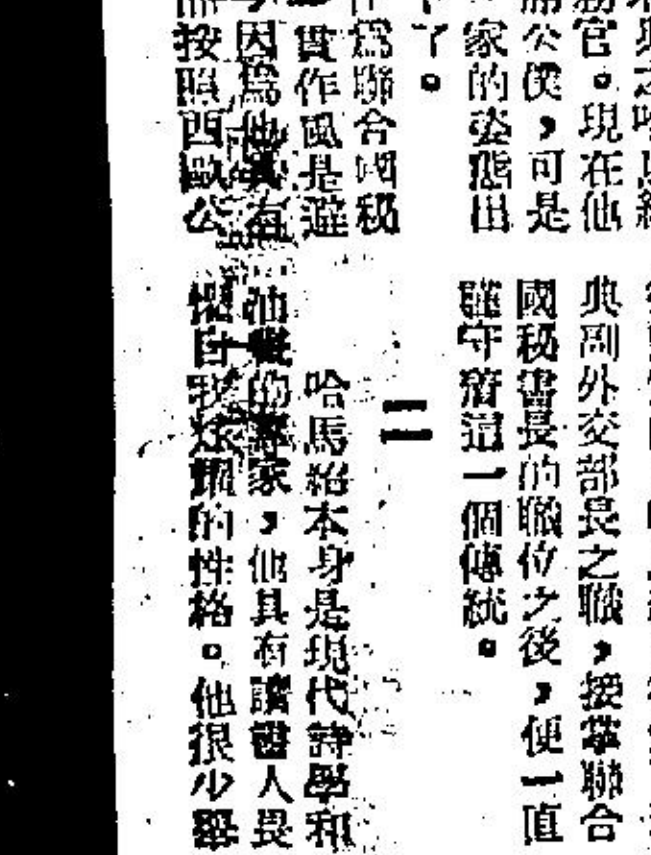 務官。現在他
公僕，可是
家的姿態出
了。
為聯合國秘
貫作風是避
因為他具有
按照西歐公
典副外交部長之職，接掌聯合
國秘書長的職位之後，便一直
謹守着這一個傳統。
二
哈馬紹本身是現代詩學和
油畫的專家，他具有讀書人畏
懼自我炫耀的性格。他很少舉